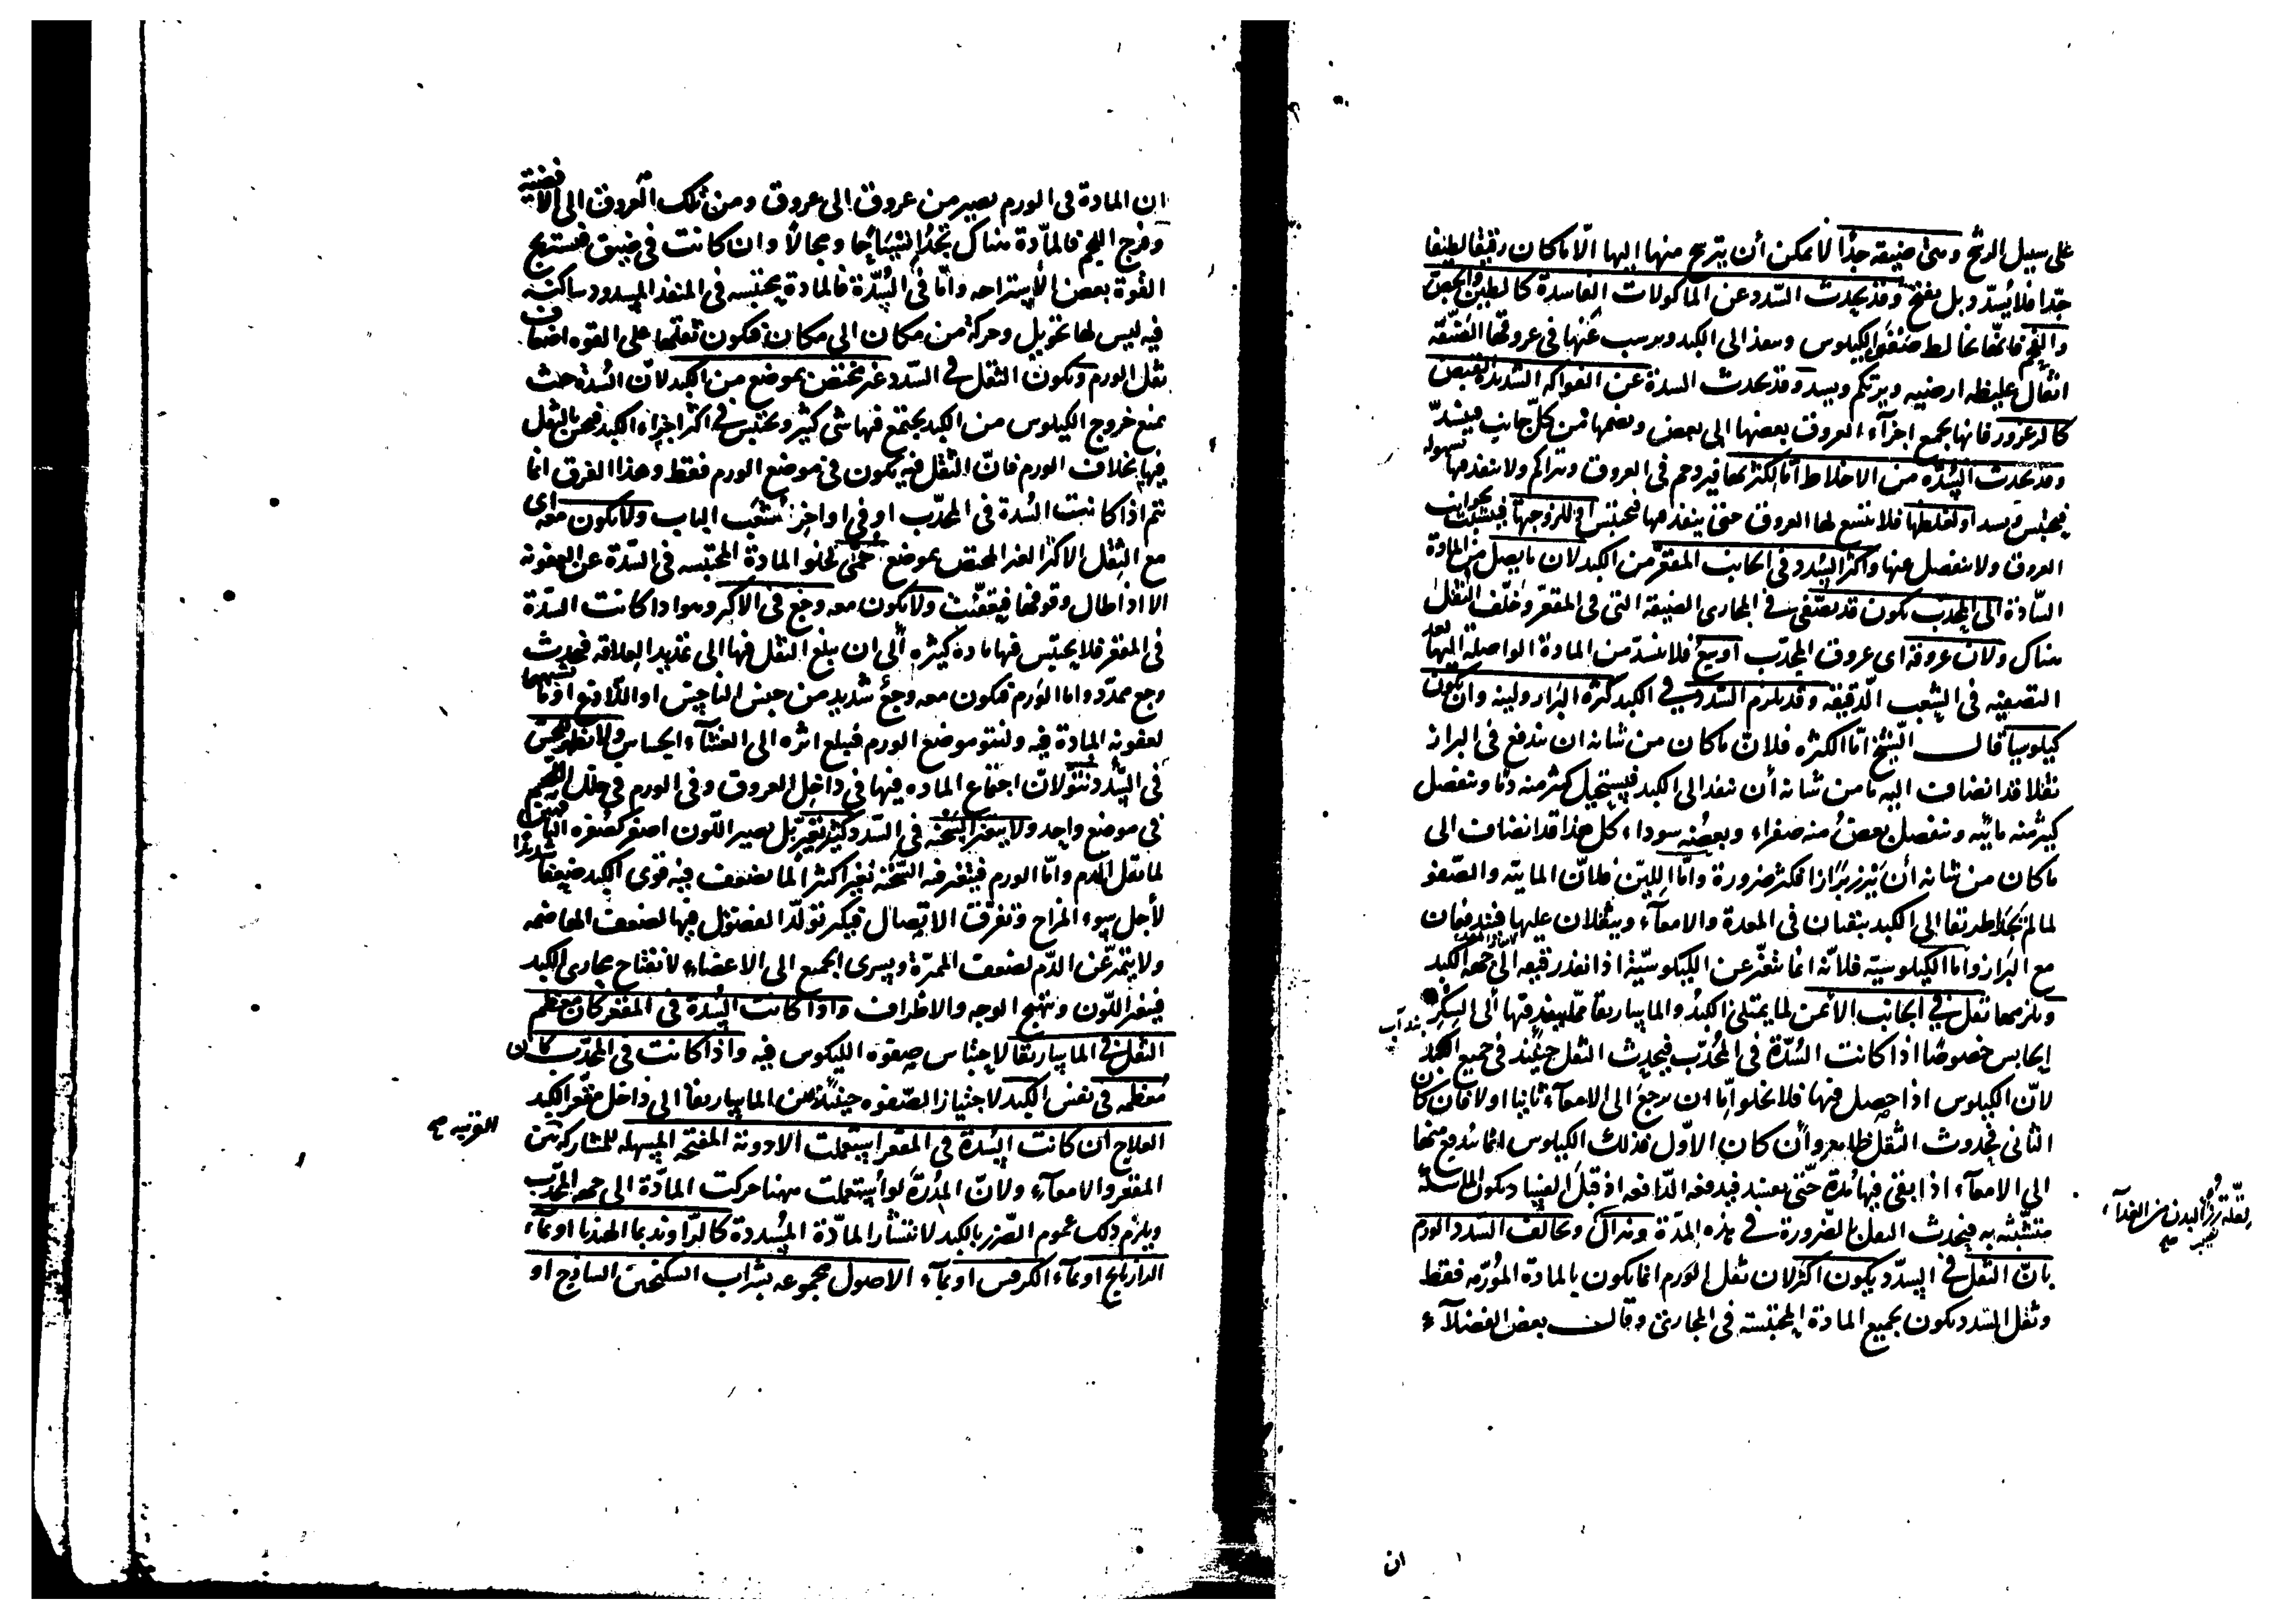 على سبيل الرشح وهى ضيقة جدا لا يمكن أن يترشح منها اليها الا ما كان رقيقا لطيفا
جدا فلا يسدّد بل يفتح وقد يحدث السدد عن الماكولات الفاسدة كالطين والجص
والفحم فانها تخالط الكيلوس وينفذ الى الكبد ويرسب عنها فى عروقها الضيّقة
اثقال غليظه ارضيه ويرتكم ويسد وقد يحدث السدة عن الفواكه الشديدة القبض
كالزعرور فانها يجمع اجزاء العروق بعضها الى بعض ويضمها من كلّ جانب فينسدّ
وقد يحدث السدّه من الاخلاط امّا لكثرتها فيزدحم فى العروق ويتراكم ولا ينفذ منها بسهوله
فيحتبس ويسد او لغلظها فلا يتسع لها العروق حتى ينفذ منها فيحتبس او للزوجتها فيتشبث بجوانب
العروق ولا ينفصل عنها واكثر السدد فى الجانب المقعّر من الكبد لان ما يصل من المادة
السّادة الى المحدّب يكون قد تصفّى فى المجارى الضيقة التى فى المقعّر وخلّف الثقل
هناك ولان عروقه اى عروق المحدّب اوسع فلا ينسدّ من المادة الواصلة اليها بعد
التصفيه فى الشعب الدّقيقه وقد يلزم السدد فى الكبد كثرة البراز ولينه وان يكون
كيلوسيا قال الشيخ امّا الكثره فلانّ ما كان من شانه ان يندفع فى البراز
ثقلا قد انضاف اليه ما من شانه أن ينفذ الى الكبد فيستحيل كثير منه دمًا وينفصل
كثير منه مائيه وينفصل بعضٌ منه صفراء وبعضه سوداء كل هذا قد انضاف الى
ما كان من شانه أن يبرز برازا فكثر ضرورة وامّا اللين فلانّ المايّة والصّفو
لما لم يجدا طريقا الى الكبد بقيان فى المعدة والامعآء ويثقلان عليها فيندفعان
مع البراز وامّا الكيلوسيّه فلانّه انما يتغيّر عن الكيلوسيّة اذا نفذ رقيقه الى جهة الكبد
ويلزمها ثقل فى الجانب الأيمن لما يمتلئ الكبد والماساريقا ممّا ينفذ فيها الى السدّة
الحابس خصوصًا اذا كانت السُدّة فى المُحدّب فيحدث الثقل حينئذ فى جميع الكبد
لانّ الكيلوس اذا حصل فيها فلا يخلو امّا ان يرجع الى الامعآء ثانيا او لا فان كان
الثانى فحدوث الثقل ظاهر وأن كان الاوّل فذلك الكيلوس انما يندفع منها
الى الامعآء اذا بقى فيها مُدة حتّى يفسد فيدفعه الدّافعه اذ قبل الفساد يكون الماسكة
متشبّثه به فيحدث الثقل بالضّرورة فى هذه المدّة ويخالف السدد الورم
بانّ الثقل فى السدّد يكون اكثر لان ثقل الورم انما يكون بالمادة المُورّمه فقط
وثقل السّدد يكون بجميع المادة المحتبسه فى المجارى وقال بعض الفضلآء
ان
ان المادة فى الورم يصير من عروق الى عروق ومن تلك العروق الى الافضية
وفرج اللحم فالمادّة هناك تجد ومجالاً وان كانت فى ضيق فتستريح
القوة بعض الاستراحه وامّا فى السُدّة فالمادة يحتبسه فى المنفذ المسدود ساكنه
فيه ليس لها تحويل وحركة من مكان الى مكان فيكون ثقلها على القوه اضعاف
ثقل الورم ويكون الثقل فى السّدد غير مختصّ بموضع من الكبد لانّ السُدة حيث
يمنع خروج الكيلوس من الكبد يجتمع فيها شى كثير ويحتبس فى اكثر اجزاء الكبد فيحس بالثقل
فيها بخلاف الورم فانّ الثقل فيه يكون فى موضع الورم فقط وهذا الفرق انما
يتم اذا كانت السُدة فى المحدّب او فى اواخر شعب الباب ولا يكون معه اى
مع الثقل الاكثر الغير المختص بموضع حمّى لخلو المادة المحتبسه فى السّدة عن العفونه
الا اذا طال وقوفها فيعفنت ولا يكون معه وجع فى الاكثر وهو اذا كانت السدّة
فى المقعّر فلا يحتبس فيها مادة كثيره الى ان يبلغ الثقل فيها الى تمديد العلاقه فيحدث
وجع ممدّد واما الورم فيكون معه وجعٌ شديد من جنس الناخس او اللّاذع او ما يشبههما
لعفونه المادة فيه ولنتو موضع الورم فيبلغ اثره الى الغشآء الحساس ولا يظهر للحس
فى السّدد نتوّ لانّ اجتماع الماده فيها فى داخل العروق وفى الورم فى خلل اللحم
فى موضع واحد ولا يتغير السحنه فى السّدد كثير تغيّر بل يصير اللّون اصفر
لما يقل الدم وامّا الورم فيتغير فيه السّحنه تغيرا كثيرا لما يضعف فيه قوى الكبد ضعفا شديدا
لأجل سوء المزاج وتفرّق الاتصال فيكثر تولّد الفضول فيها لضعف الهاضمه
ولا يتميّز عن الدّم لضعف المميّزة ويسرى الجميع الى الاعضاء لانفتاح مجارى الكبد
فيتغير اللّون ويتهبج الوجه والاطراف واذا كانت السُدة فى المقعر كان معظم
الثقل فى الماساريقا لاحتباس صفوه الكيلوس فيه واذا كانت فى المحدّب كان
مُعظمه فى نفس الكبد لاجتياز الصّفوه حينئذ عن الماساريقا الى داخل مقعّر الكبد
العلاج ان كانت السُدّة فى المقعر استعملت الادوية المفتّحه المسهله للمشاركة بين
المقعّر والامعآء ولانّ المُدرّة لو استعملت ههنا حركت المادّة الى جهة المحدّب
ويلزم ذلك عموم الضّرر بالكبد لانتشار المادّة المُسدّدة كالرّاوند بما الهندبا او بمآء
الرازيانج او بمآء الكرفس او بمآء الاصول مجموعه بشراب السكنجبين الساذج او
القريبه صح